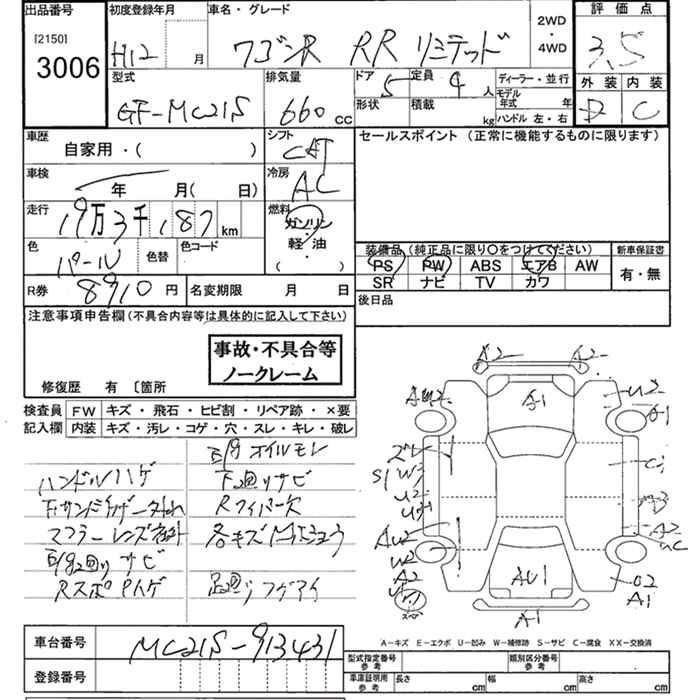 出品番号
[2150]
3006
初度登録年月
H12 月
車名・グレード
ワゴンR RR リミテッド
2WD
・
4WD
評価点
3.5
外装 内装
D C
型式
GF-MC21S
排気量
660 cc
ドア
5
定員
4人
形状
積載
kg
ディーラー・並行
モデル年式 年
ハンドル 左・右
車歴
自家用・( )
シフト
CAT
セールスポイント (正常に機能するものに限ります)
車検
年 月( 日)
冷房
AC
走行
19万3千187km
燃料
ガソリン
・
軽・油
( )
色
パール
色替
色コード
装備品(純正品に限り○をつけてください)
PS PW ABS エアB AW
SR ナビ TV カワ
新車保証書
有・無
R券
8910円
名変期限 月 日
後日品
注意事項申告欄(不具合内容等は具体的に記入して下さい)
事故・不具合等
ノークレーム
修復歴 有 〔箇所
検査員
記入欄
FW キズ・飛石・ヒビ割・リペア跡・×要
内装 キズ・汚レ・コゲ・穴・スレ・キレ・破レ
オイルモレ
ハンドルハゲ
下廻リサビ
Rワイパー欠
マフラー
各キズ
サビ
RスポPハゲ
A2 A2
A-1
U2
A-1
ズレ
S1 W3
U2
C1
W2
A2
U
スペア
AU1
U2
A1
A-1
A-キズ E-エクボ U-凹み W-補修跡 S-サビ C-腐食 XX-交換済
車台番号
MC21S-913431
登録番号
型式指定番号
参考
類別区分番号
参考
車庫証明用
参考
長さ cm
幅 cm
高さ cm